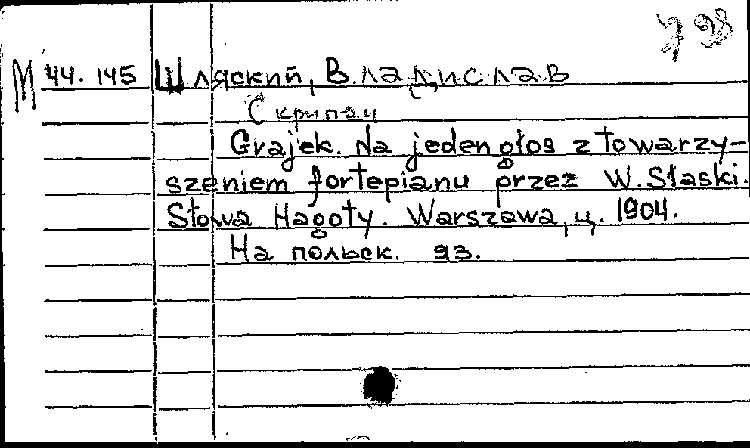 798
М 44.145 Шляский, Владислав
Скрипач
Grajek. Na jeden głos z towarzy-
szeniem fortepianu przez W. Słaski.
Słowa Hagoty. Warszawa, ц. 1904.
На польск. яз.